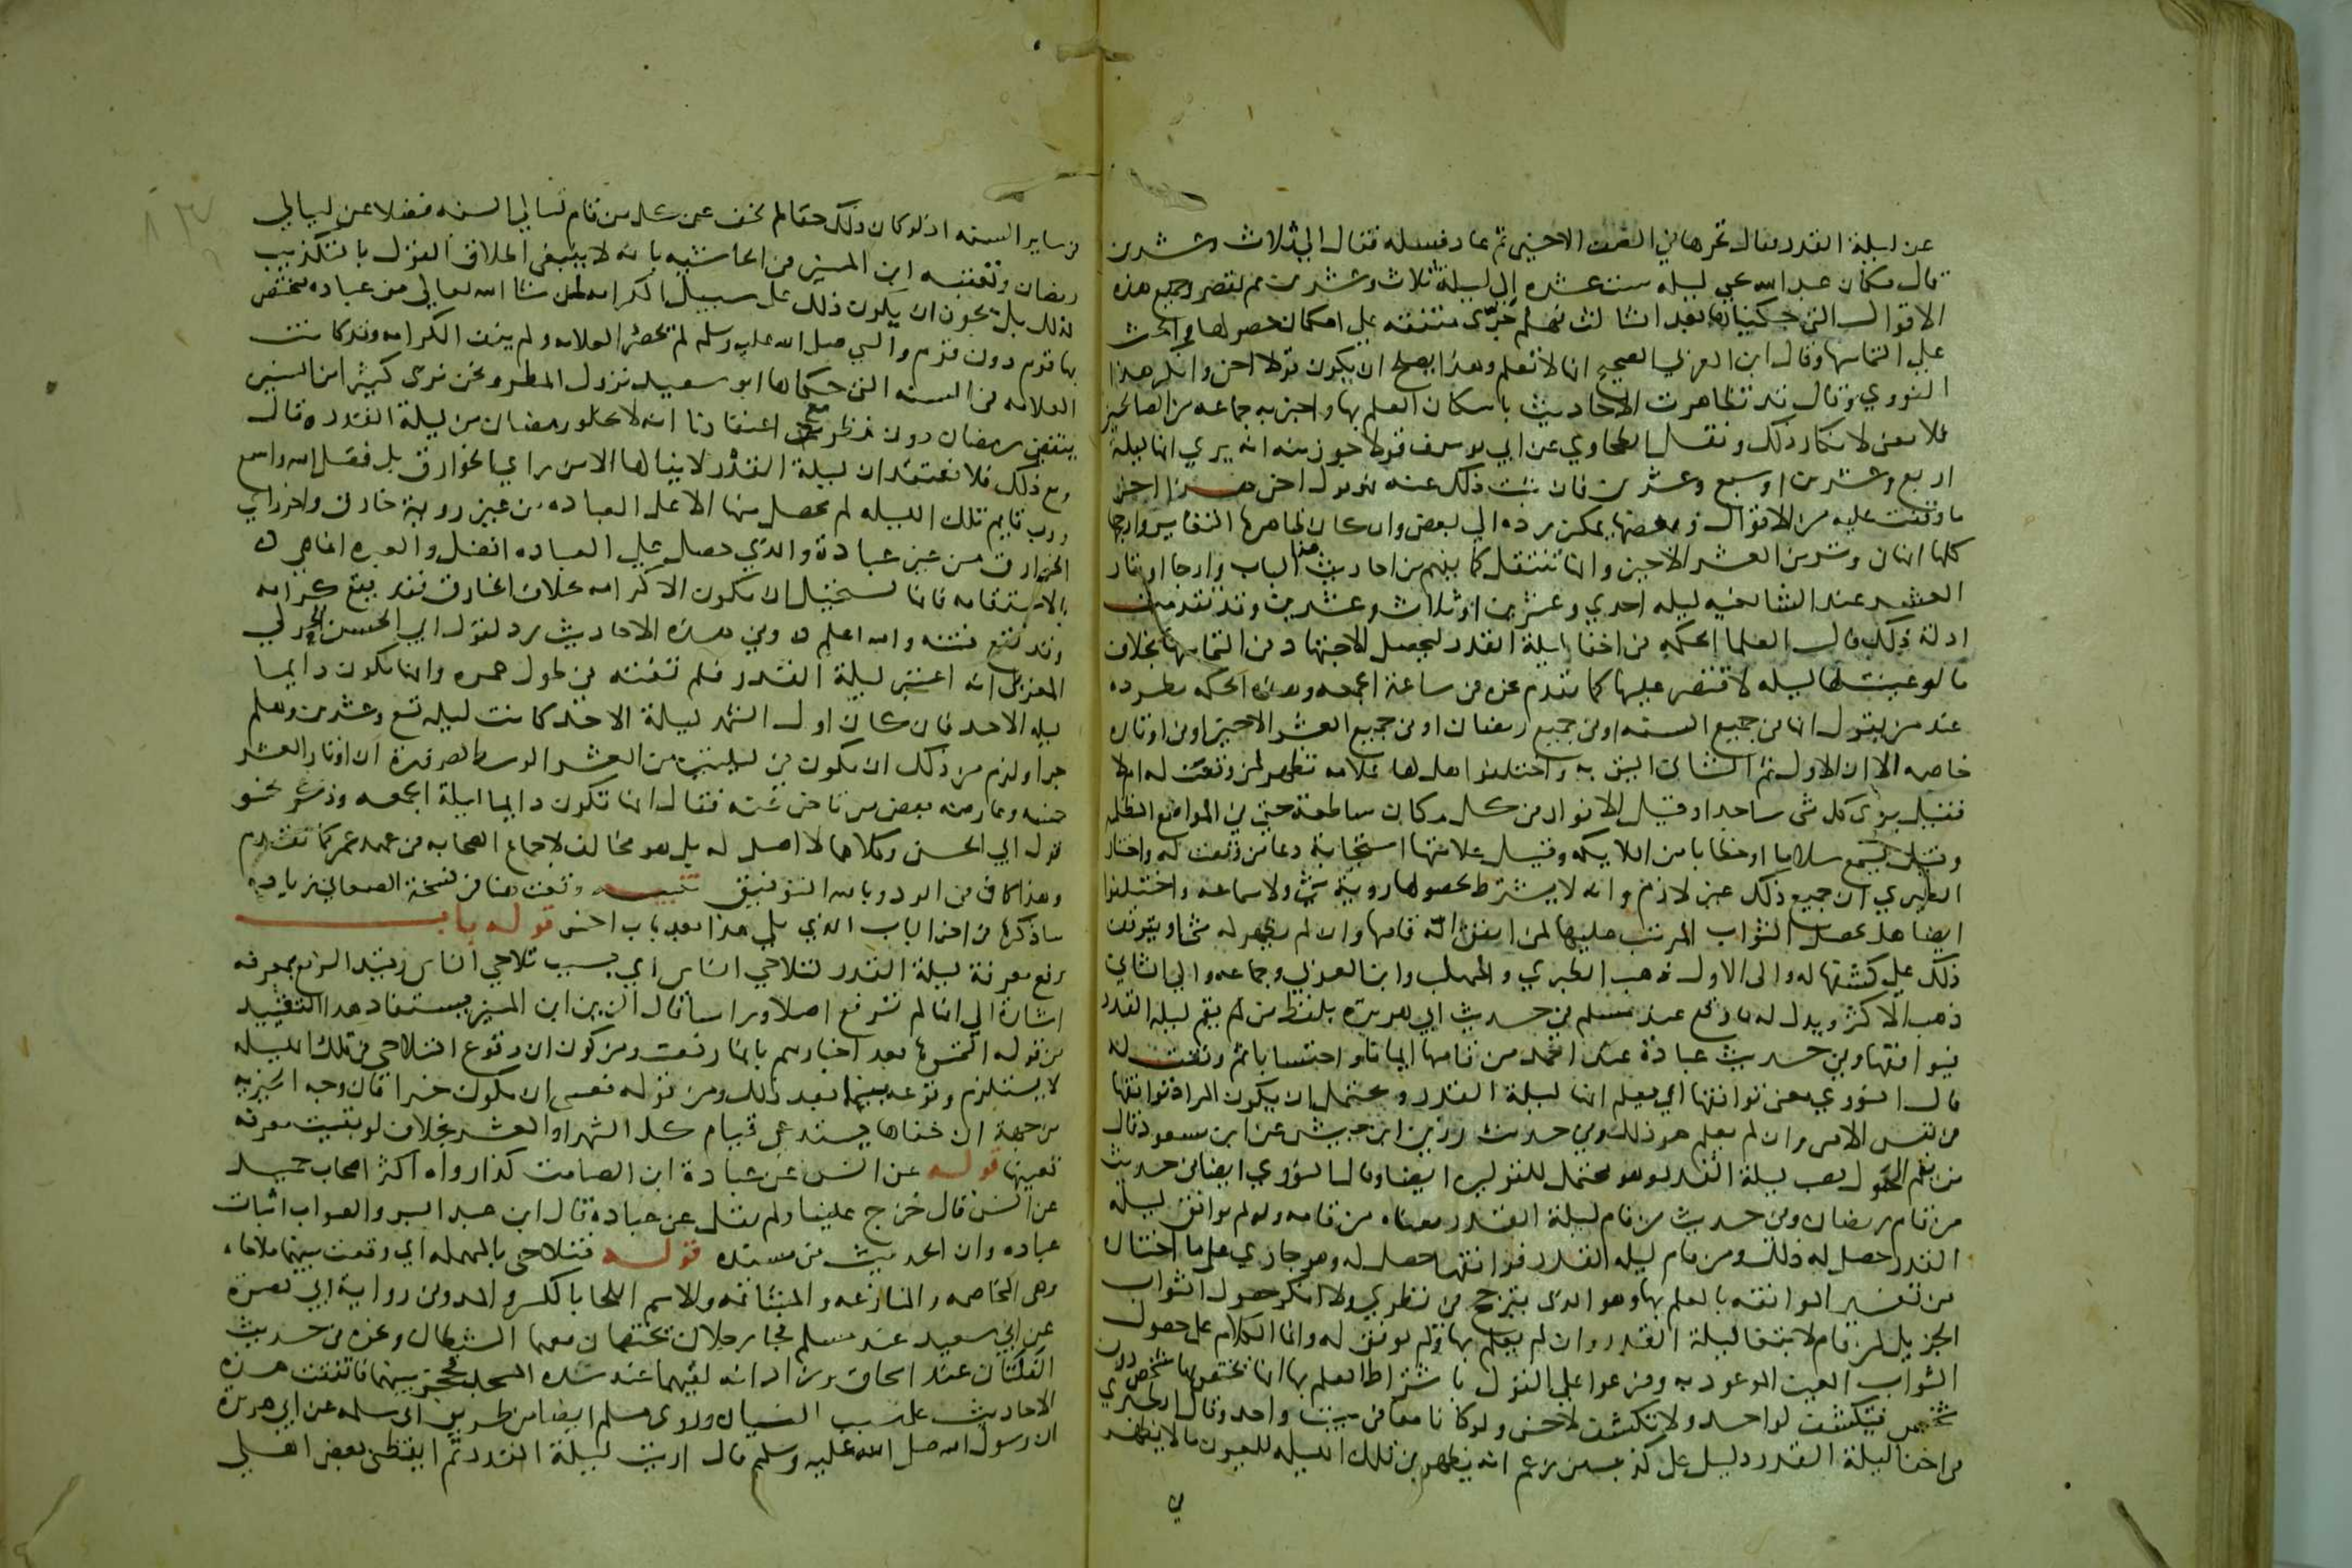 عن ليلة القدر فقال تحرها في النصف الاخير ثم عاد فسله فقال الي ثلاث وعشرين
قال وكان عبد الله يحي ليله ست عشره إلى ليلة ثلاث وعشرين ثم يقصر وجميع هذه
الاقوال التي حكيناها بعد الثالث فهلم جرّى متفقه على امكان حصولها والحث
على التماسها وقال ابن العربي الصحيح انها لا تعلم وهذا يصلح ان يكون قولا اخر وانكر هذا
النووي وقال قد تظاهرت الاحاديث بامكان العلم بها واخبر به جماعه من الصالحين
فلا معنى لانكار ذلك ونقل الطحاوي عن ابي يوسف قولا جوز فيه انه يري انها ليلة
اربع وعشرين او سبع وعشرين فان ثبت ذلك عنه فهو قول اخر هذا اخر
ما وقفت عليه من الاقوال وبعضها يمكن رده الي بعض وان كان ظاهرها التغاير وارجحها
كلها انها في وتر من العشر الاخير وانها تنتقل كما يفهم من احاديث هذا الباب وارجاها اوتار
العشر عند الشافعيه ليله احدي وعشرين او ثلاث وعشرين وقد تقدمت
ادلة ذلك قال العلما الحكمه في اخفا ليلة القدر ليحصل الاجتهاد في التماسها بخلاف
ما لو عينت لها ليله لاقتصر عليها كما تقدم نحوه في ساعة الجمعه وهذه الحكمه مطرده
عند من يقول انها في جميع السنه او في جميع رمضان او في جميع العشر الاخير او في اوتاره
خاصه الا ان الاول ثم الثاني اليق به واختلفوا هل لها علامه تظهر لمن وقعت له ام لا
فقيل يرى كل شى ساجدا وقيل الانوار في كل مكان ساطعة حتي في المواضع المظلمه
وقيل يسمع سلاما او خطابا من الملايكه وقيل علامتها استجابة دعا من وقعت له واختار
الطبري ان جميع ذلك غير لازم وانه لا يشترط لحصولها روية شى ولا سماعه واختلفوا
ايضا هل يحصل الثواب المرتب عليها لمن اتفق انه قامها وان لم يظهر له شى او يتوقف
ذلك علي كشفها له والى الاول ذهب الطبري والمهلب وابن العربي وجماعه والي الثاني
ذهب الاكثر ويدل له ما وقع عند مسلم في حديث ابي هريرة بلفظ من لم يقم ليلة القدر
فيوافقها وفي حديث عبادة عند احمد من قامها ايمانا واحتسابا ثم وفقت له
قال النووي معنى يوافقها اي يعلم انها ليلة القدر ويحتمل ان يكون المراد يوافقها
في نفس الامر وان لم يعلم هو ذلك وفي حديث زر بن حبيش عن ابن مسعود قال
من يقم الحول يصب ليلة القدر وهو محتمل للقولين ايضا وقال النووي ايضا في حديث
من قام رمضان وفي حديث من قام ليلة القدر معناه من قامه ولو لم يوافق ليله
القدر حصل له ذلك ومن قام ليله القدر فوافقها حصل له وهو جاري على ما اختاره
من تفسير الموافقه بالعلم بها وهو الذى يترجح في نظري ولا انكر حصول الثواب
الجزيل لمن قام لابتغا ليلة القدر وان لم يعلم بها ولم توفق له وانما الكلام على حصول
الثواب المعين الموعود به وفرعوا على القول باشتراط العلم بها انه يختص بها شخص دون
شخص فيكشف لواحد ولا تكشف لاخر ولو كانا معا في بيت واحد وقال الطبري
في اخفا ليلة القدر دليل على كذب من زعم انه يظهر في تلك الليله للعيون ما لا يظهر
في
في ساير السنه اذ لو كان ذلك حقا لم يخف عن كل من قام ليالي السنه فضلا عن ليالي
رمضان وتعقبه ابن المنير في الحاشيه بانه لا ينبغي اطلاق القول بالتكذيب
لذلك بل يجوز ان يكون ذلك على سبيل الكرامه لمن شا الله تعالى من عباده فيختص
بها قوم دون قوم والنبي صلى الله عليه وسلم لم يحصر العلامه ولم ينف الكرامه وقد كانت
العلامه في السنه التي حكاها ابو سعيد نزول المطر ونحن نرى كثيرا من السنين
ينقضي رمضان دون مطر مع اعتقادنا انه لا يخلو رمضان من ليلة القدر ه قال
ومع ذلك فلا نعتقد ان ليلة القدر لا ينالها الا من راي الخوارق بل فضل الله واسع
ورب قايم تلك الليله لم يحصل منها الا على العباده من غير روية خارق واخر راي
الخوارق من غير عبادة والذي حصل علي العباده افضل والعبره انما هى ه
بالاستقامه فانها تستحيل ان تكون الا كرامه بخلاف الخارق فقد يقع كرامه
وقد تقع فتنه والله اعلم ه وفي هذه الاحاديث رد لقول ابي الحسن الحولي
المغربى انه اعتبر ليلة القدر فلم تفته في طول عمره وانها تكون دايما
ليله الاحد فان كان اول الشهر ليلة الاحد كانت ليله تسع وعشرين وهلم
جرا ولزم من ذلك ان تكون في ليلتين من العشر الوسط لضرورة ان اوتار العشر
خمسه وعارضه بعض من تاخر عنه فقال انها تكون دايما ليلة الجمعه وذكر نحو
قول ابي الحسن وكلاهما لا اصل له بل هو مخالف لاجماع الصحابه في عهد عمر كما تقدم
وهذا كاف في الرد وبالله التوفيق تنبيه وقعت هنا في نسخة الصغاني زياده
ساذكرها في اخر الباب الذي يلي هذا بعد باب اخر قوله باب
رفع معرفة ليلة القدر لتلاحي الناس اي بسبب تلاحي الناس وقيد الرفع بمعرفه
اشارة الى انها لم ترفع اصلا وراسا قال الزين ابن المنير يستفاد هذا التقييد
من قوله التمسوها بعد اخبارهم بانها رفعت ومن كون ان وقوع التلاحي في تلك الليله
لا يستلزم وقوعه فيما بعد ذلك ومن قوله فعسى ان يكون خيرا فان وجه الخيريه
من جهة ان خفاها يستدعي قيام كل الشهر او العشر بخلاف لو بقيت معرفه
تعيينها قوله عن انس عن عبادة ابن الصامت كذا رواه اكثر اصحاب حميد
عن انس قال خرج علينا ولم يقل عن عبادة قال ابن عبد البر والصواب اثبات
عباده وان الحديث من مسنده قوله فتلاحى بالمهمله اي وقعت بينهما ملاحاه
وهى المخاصمه والمنازعه والمشاتمه والاسم اللحا بالكسر والمد وفي رواية ابي نضرة
عن ابي سعيد عند مسلم فجا رجلان يختصمان معهما الشيطان ونحوه في حديث
الفلتان عند اسحاق وزاد انه لقيهما عند سده المسجد فحجز بينهما فاتفقت هذه
الاحاديث على سبب النسيان وروى مسلم ايضا من طريق ابي سلمه عن ابي هريرة
ان رسول الله صلى الله عليه وسلم قال اريت ليلة القدر ثم ايقظني بعض اهلي